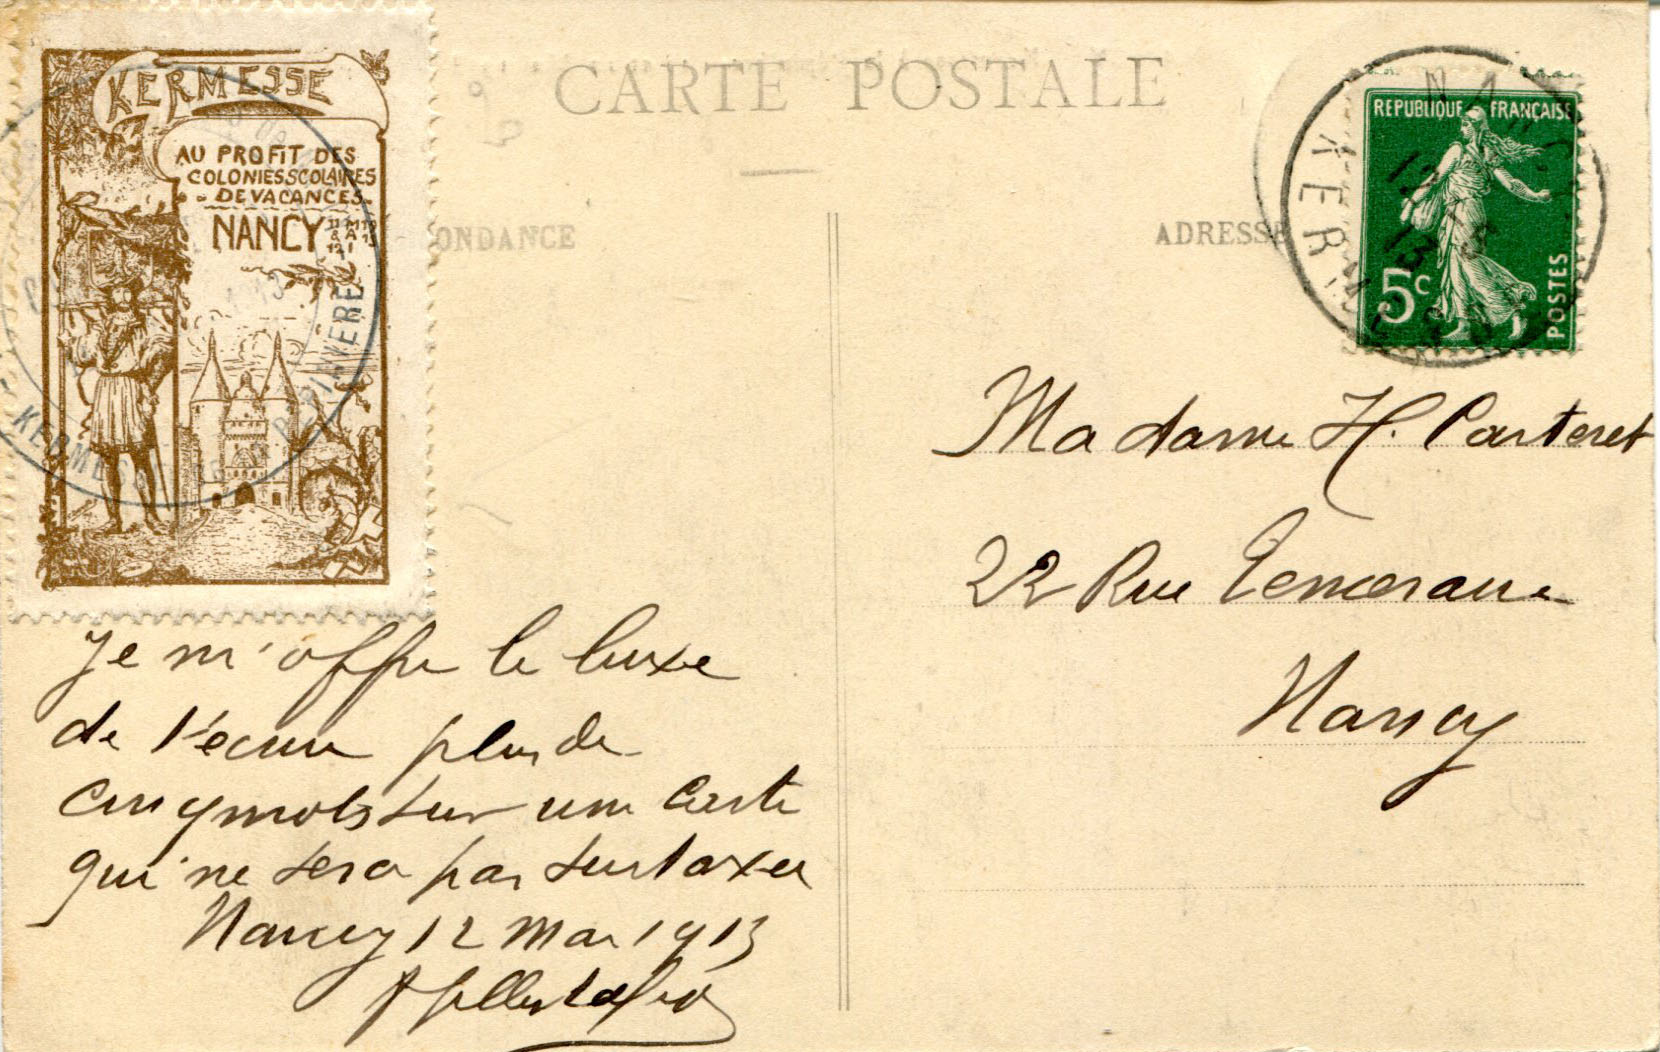 CARTE POSTALE
KERMESSE
AU PROFIT DES
COLONIES SCOLAIRES
DE VACANCES
NANCY 11 & 12 MAI 1913
ONDANCE
ADRESSE
KERMESSE DE PEPINIERE
1913
REPUBLIQUE FRANÇAISE
5c
POSTES
KERM
Madame H. Carteret
22 Rue
Nancy
Je m'offre le luxe
de t'écrire plus de
cinq mots sur une carte
qui ne sera pas surtaxée
Nancy 12 Mai 1913